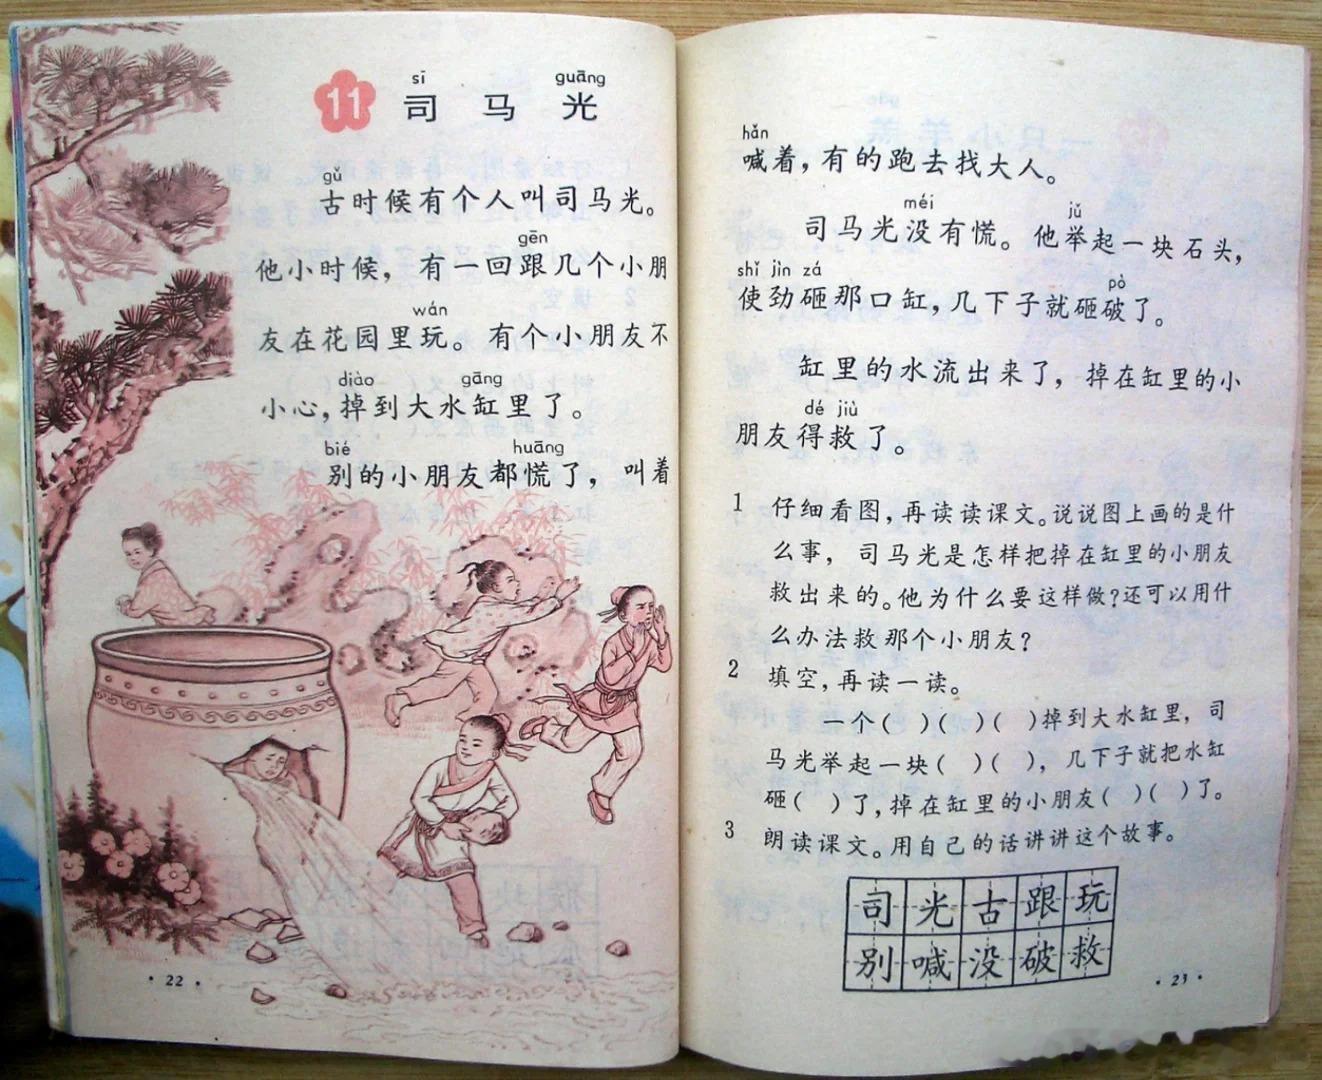 11 司马光
sī guāng
gǔ
古时候有个人叫司马光。
gēn
他小时候，有一回跟几个小朋
wán
友在花园里玩。有个小朋友不
diào gāng
小心，掉到大水缸里了。
bié huāng
别的小朋友都慌了，叫着
·22·
hǎn
喊着，有的跑去找大人。
méi jǔ
司马光没有慌。他举起一块石头，
shǐ jìn zá pò
使劲砸那口缸，几下子就砸破了。
缸里的水流出来了，掉在缸里的小
dé jiù
朋友得救了。
1 仔细看图，再读读课文。说说图上画的是什
么事，司马光是怎样把掉在缸里的小朋友
救出来的。他为什么要这样做？还可以用什
么办法救那个小朋友？
2 填空，再读一读。
一个( )( )( )掉到大水缸里，司
马光举起一块( )( )，几下子就把水缸
砸( )了，掉在缸里的小朋友( )( )了。
3 朗读课文。用自己的话讲讲这个故事。
司光古跟玩
别喊没破救
·23·